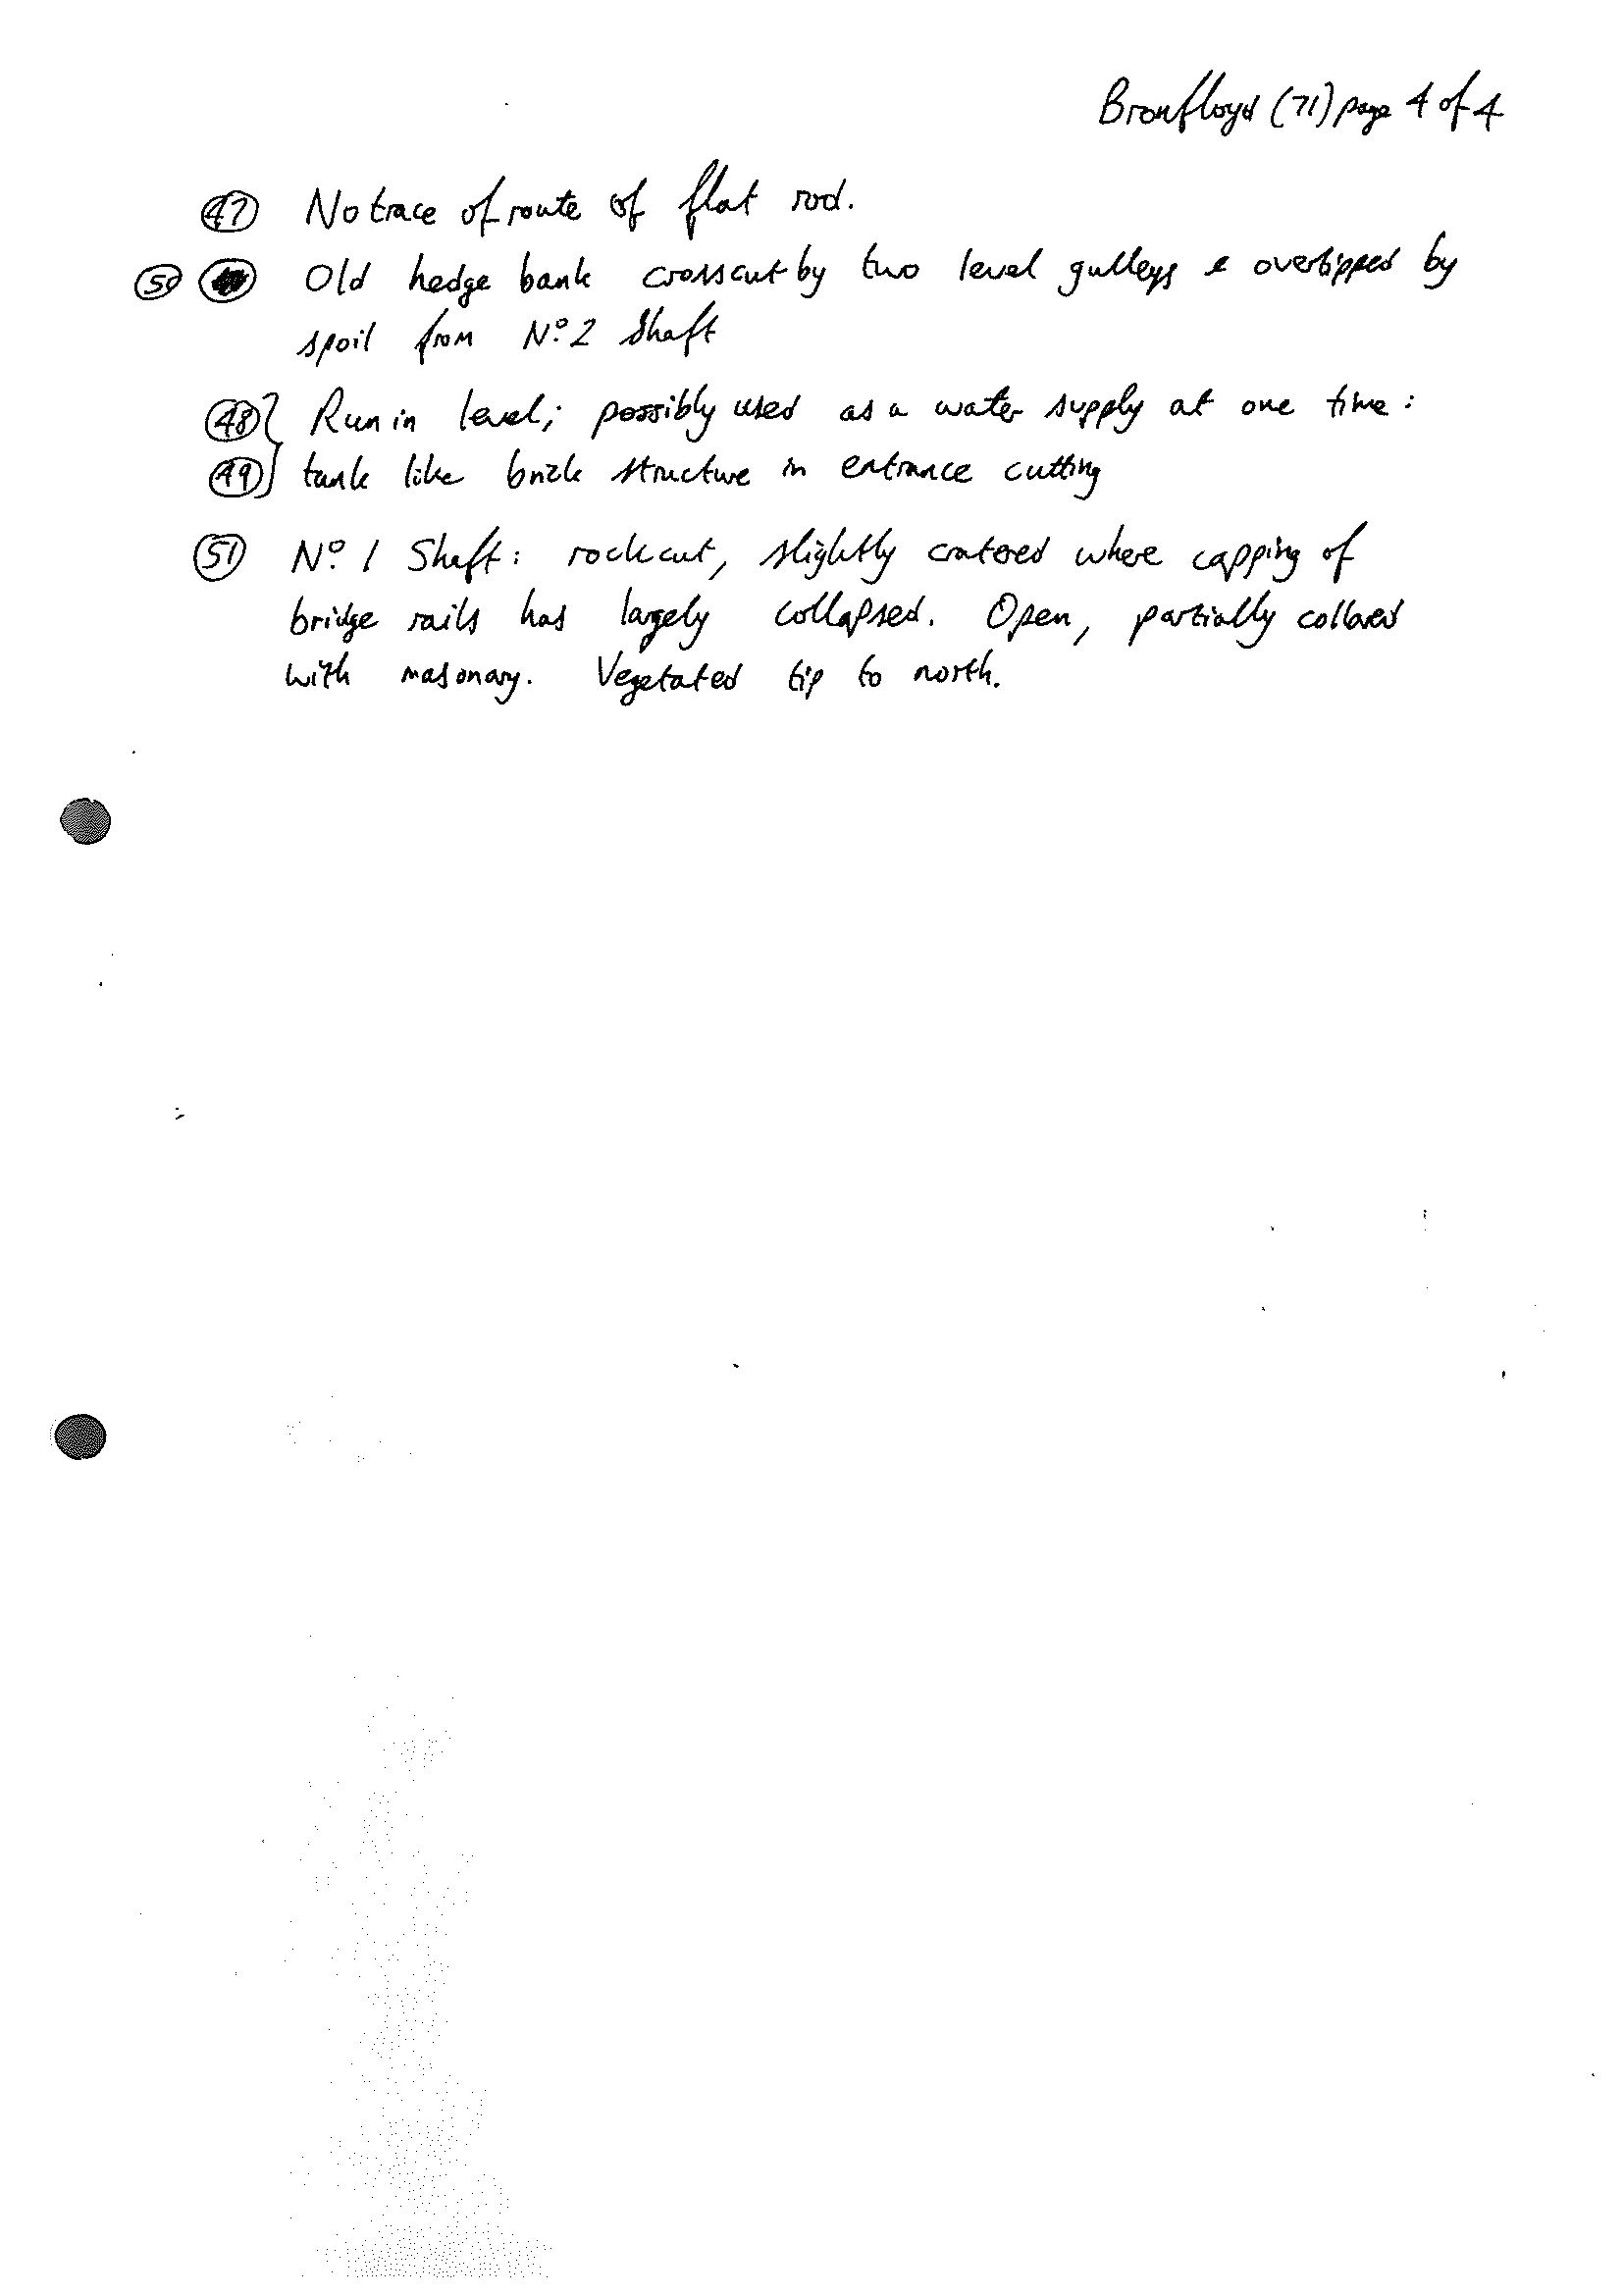 Bronfloyd (71) page 4 of 4
47 No trace of route of flat rod.
50 Old hedge bank crosscut by two level gulleys & overtipped by
spoil from No. 2 Shaft
48 Run in level; possibly used as a water supply at one time:
49 tank like brick structure in entrance cutting
51 No. 1 Shaft: rock cut, slightly cratered where capping of
bridge rails has largely collapsed. Open, partially collared
with masonary. Vegetated tip to north.